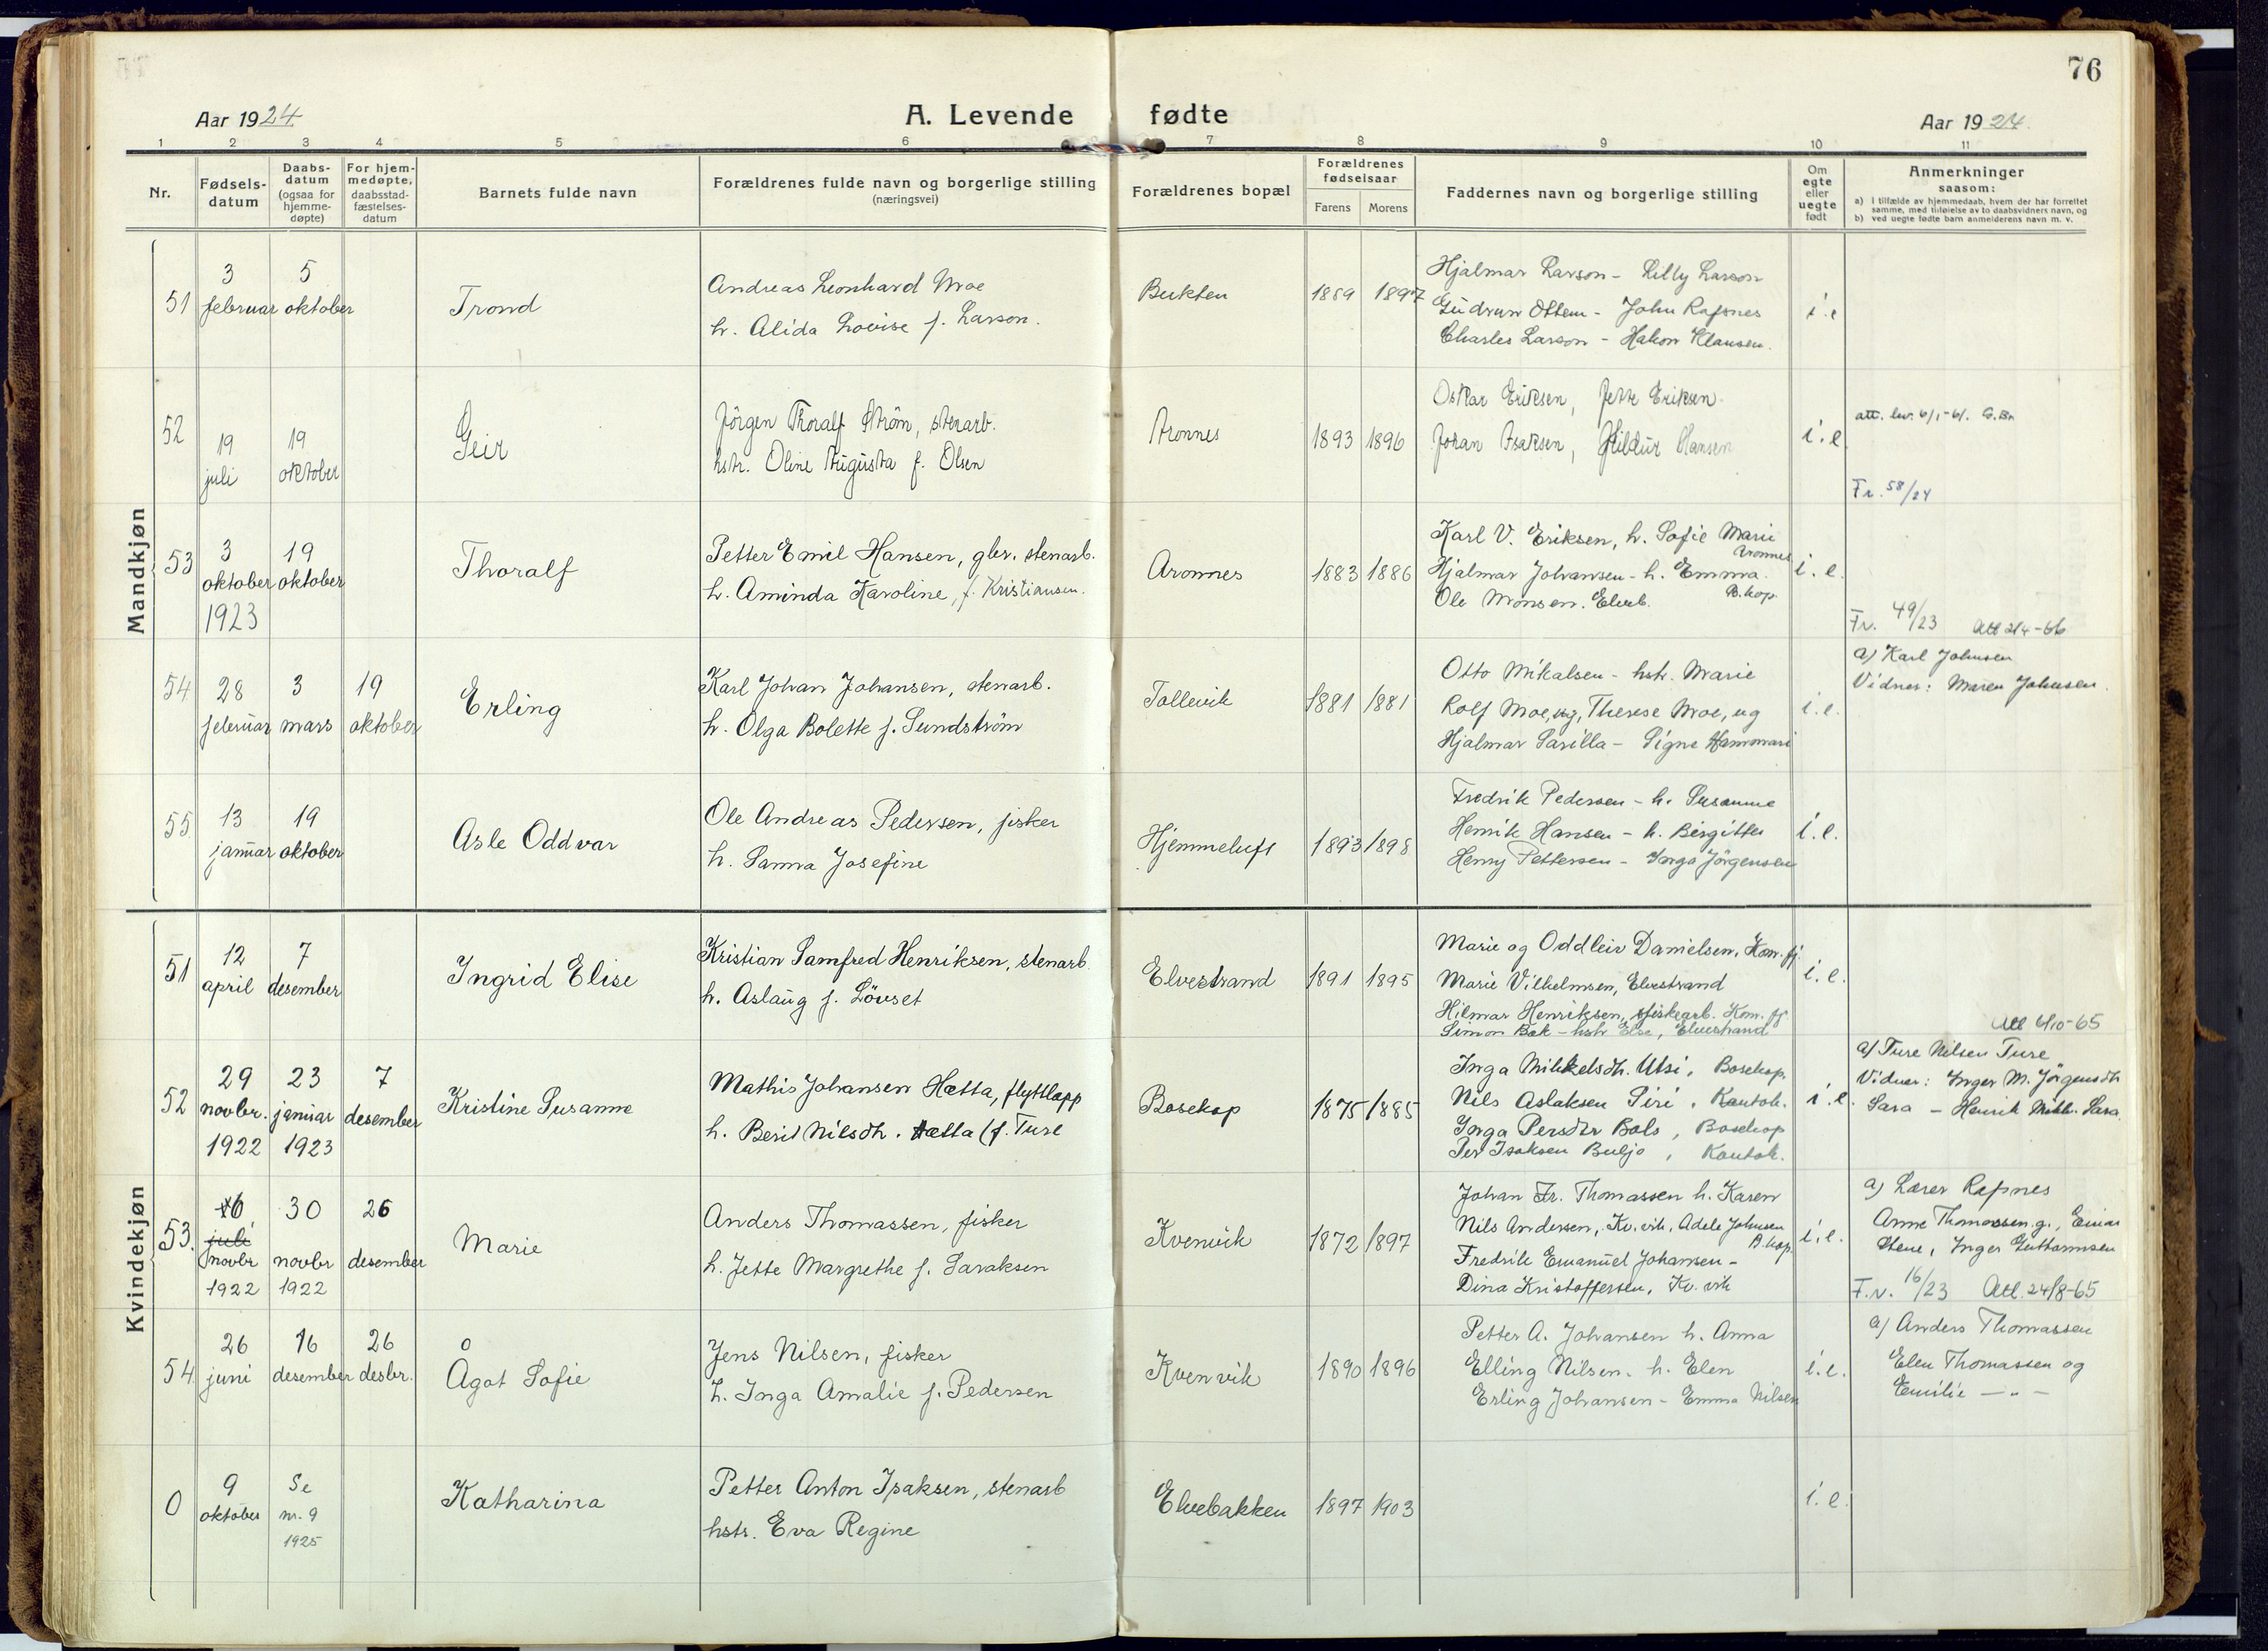 76
Aar 1924
A. Levende fødte
Aar 1924
1 2 3 4 5 6 7 8 9 10 11
Nr.
Fødsels-
datum
Daabs-
datum
(ogsaa for
hjemme-
døpte)
For hjem-
medøpte,
daabsstad-
fæstelses-
datum
Barnets fulde navn
Forældrenes fulde navn og borgerlige stilling
(næringsvei)
Forældrenes bopæl
Forældrenes
fødselsaar
Farens Morens
Faddernes navn og borgerlige stilling
Om
egte
eller
uegte
født
Anmerkninger
saasom:
a) I tilfælde av hjemmedaab, hvem der har forrettet
samme, med tilføielse av to daabsvidners navn, og
b) ved uegte fødte barn anmelderens navn m. v.
Mandkjøn
51
3
februar
5
oktober
Trond
Andreas Leonhard Moe
h. Alida Lovise f. Larson.
Bukten
1889 1897
Hjalmar Larson - Lilly Larson
Gudrun Ottem - John Rafsnes
Charles Larson - Hakon Klausen.
i. e
52
19
juli
19
oktober
Geir
Jörgen Thoralf Ström, stenarb.
hstr. Oline Augusta f. Olsen
Aronnes
1893 1896
Oskar Eriksen, Jette Eriksen
Johan Isaksen, Hildur Hansen
i. e
att. lev. 6/1-61. G.Br
Fr. 58/24
53
3
oktober
1923
19
oktober
Thoralf
Petter Emil Hansen, gbr. stenarb.
h. Aminda Karoline, f. Kristiansen.
Aronnes
1883 1886
Karl V. Eriksen, h. Sofie Marie
Aronnes
Hjalmar Johansen - h. Emma.
B.kop.
Ole Monsen. Elveb.
i. e.
Fr. 49/23 Att 21/4-66
54
28
februar
3
mars
19
oktober
Erling
Karl Johan Johansen, stenarb.
h. Olga Bolette f. Sundström
Tollevik
1881 1881
Otto Mikalsen - hstr. Marie
Rolf Moe, ug, Therese Moe, ug
Hjalmar Sarilla - Signe Hammari
i. e.
a) Karl Johnsen
Vidner: Maren Johnsen.
55
13
januar
19
oktober
Asle Oddvar
Ole Andreas Pedersen, fisker
h. Sanna Josefine
Hjemmeluft
1893 1898
Fredrik Pedersen - h. Susanne
Henrik Hansen - h. Birgitte
Henry Pettersen - Inga Jörgensen
i. e.
Kvindekjøn
51
12
april
7
desember
Ingrid Elise
Kristian Samfred Henriksen, stenarb
h. Aslaug f. Lövset
Elvestrand
1891 1895
Marie og Oddleiv Danielsen, Kom. fj.
Marie Vilhelmsen, Elvestrand
Hilmar Henriksen, fiskearb. Kom. fj
Simon Bæk - hstr Else, Elvestrand
i. e.
52
29
novbr.
1922
23
januar
1923
7
desember
Kristine Susanne
Mathis Johansen Hætta, flyttlapp
h. Berit Nilsdh. Hætta (f. Ture
Bosekop
1875 1885
Inga Mikkelsdh. Utsi, Bosekop.
Nils Aslaksen Siri, Kautok.
Inga Persdtr Bals, Bosekop
Per Isaksen Buljo, Kautok.
i. e.
Att 6/10-65
a) Ture Nilsen Ture
Vidner: Inger M. Jörgensdh
Sara - Henrik Mikk. Sara.
53.
6
juli
novbr
1922
30
novbr
1922
26
desember
Marie
Anders Thomassen, fisker
h. Jette Margrethe f. Saraksen
Kvenvik
1872 1897
Johan Fr. Thomassen h. Karen
Nils Andersen, Kv.vik, Adele Johnsen
B.kop.
Fredrik Emanuel Johansen -
Dina Kristoffersen, Kv. vik
i. e.
a) Lærer Rafsnes
Anne Thomassen g., Einar
Stene, Inger Guttormsen
F.v. 16/23 Att. 24/8-65
54
26
juni
16
desember
26
desbr.
Ågot Sofie
Jens Nilsen, fisker
h. Inga Amalie f. Pedersen
Kvenvik
1890 1896
Petter A. Johansen h. Anna
Elling Nilsen. h. Elen
Erling Johansen - Emma Nilsen
i. e.
a) Anders Thomassen
Elen Thomassen og
Emilie — " —
0
9
oktober
Se
nr. 9
1925
Katharina
Petter Anton Isaksen, stenarb
hstr. Eva Regine
Elvebakken
1897 1903
i. e.